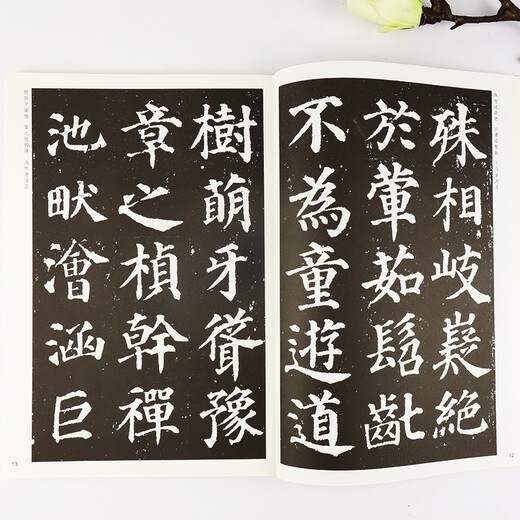 殊相岐嶷絶
於葷茹髫齔
不為童遊道
12
樹萌牙聳豫
章之楨幹禪
池畎澮涵巨
13